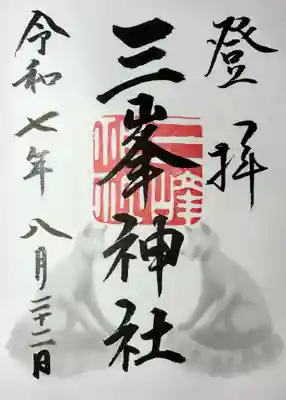 登拝
三峯神社
令和七年八月二十二日
三峰
神社